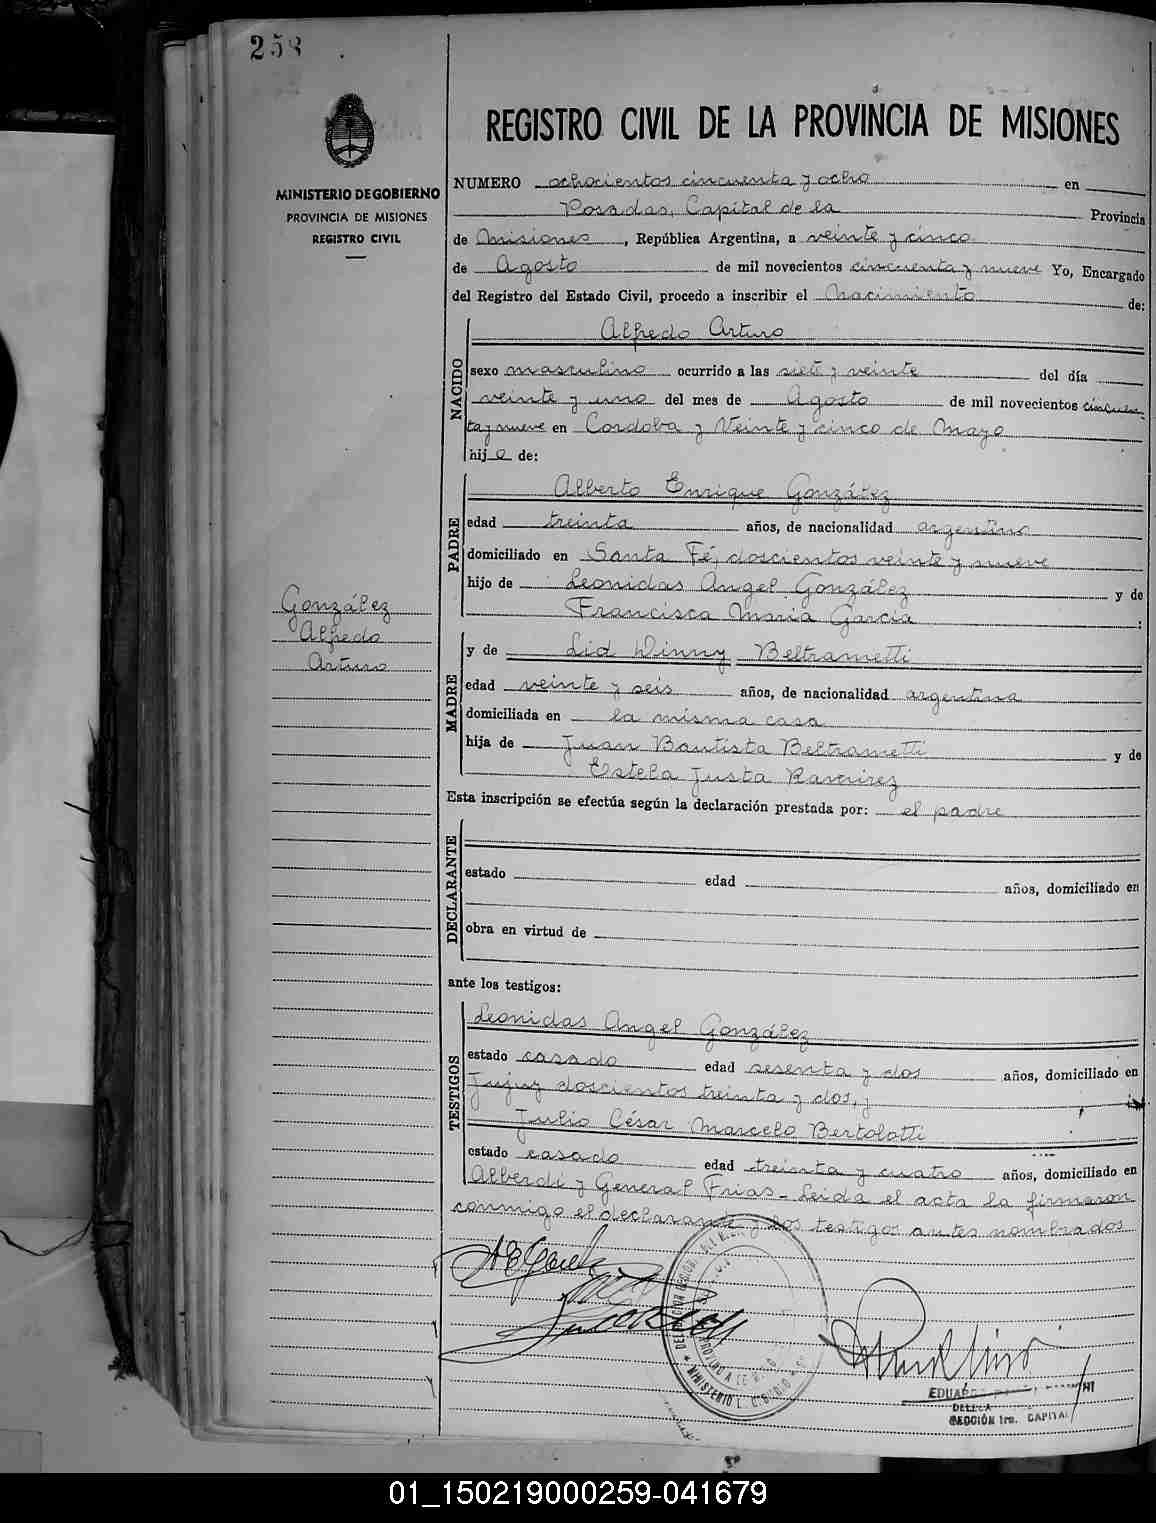 258
REGISTRO CIVIL DE LA PROVINCIA DE MISIONES
MINISTERIO DE GOBIERNO
PROVINCIA DE MISIONES
REGISTRO CIVIL
NUMERO ochocientos cincuenta y ocho en
Posadas, Capital de la Provincia
de Misiones, República Argentina, a veinte y cinco
de Agosto de mil novecientos cincuenta y nueve Yo, Encargado
del Registro del Estado Civil, procedo a inscribir el Nacimiento de:
NACIDO
Alfredo Arturo
sexo masculino ocurrido a las siete y veinte del día
veinte y uno del mes de Agosto de mil novecientos cincuen-
ta y nueve en Cordoba y Veinte y cinco de Mayo
hijo de:
PADRE
Alberto Enrique González
edad treinta años, de nacionalidad argentino
domiciliado en Santa Fé, doscientos veinte y nueve
hijo de Leonidas Angel González y de
Francisca Maria García :
González
Alfredo
Arturo
MADRE
y de Lid Winny Beltrametti
edad veinte y seis años, de nacionalidad argentina
domiciliada en la misma casa
hija de Juan Bautista Beltrametti y de
Estela Justa Ramirez
Esta inscripción se efectúa según la declaración prestada por: el padre
DECLARANTE
estado edad años, domiciliado en
obra en virtud de
ante los testigos:
TESTIGOS
Leonidas Angel González
estado casado edad sesenta y dos años, domiciliado en
Jujuy doscientos treinta y dos, y
Julio César Marcelo Bertolotti
estado casado edad treinta y cuatro años, domiciliado en
Alberdi y General Frias - Leida el acta la firmaron
conmigo el declarante y los testigos antes nombrados
EDUARDO
SECCIÓN 1ra. CAPITAL
01_150219000259-041679